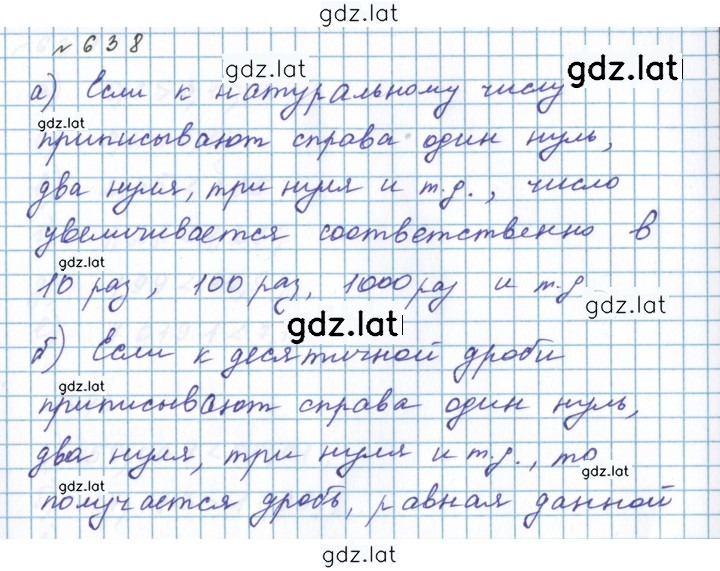 gdz.lat
№ 638
gdz.lat gdz.lat
а) Если к натуральному числу
gdz.lat
приписывают справа один нуль,
два нуля, три нуля и т.д., число
увеличивается соответственно в
gdz.lat
10 раз, 100 раз, 1000 раз и т.д.
gdz.lat
б) Если к десятичной дроби
gdz.lat
приписывают справа один нуль,
два нуля, три нуля и т.д., то
gdz.lat gdz.lat
получается дробь, равная данной
gdz.lat